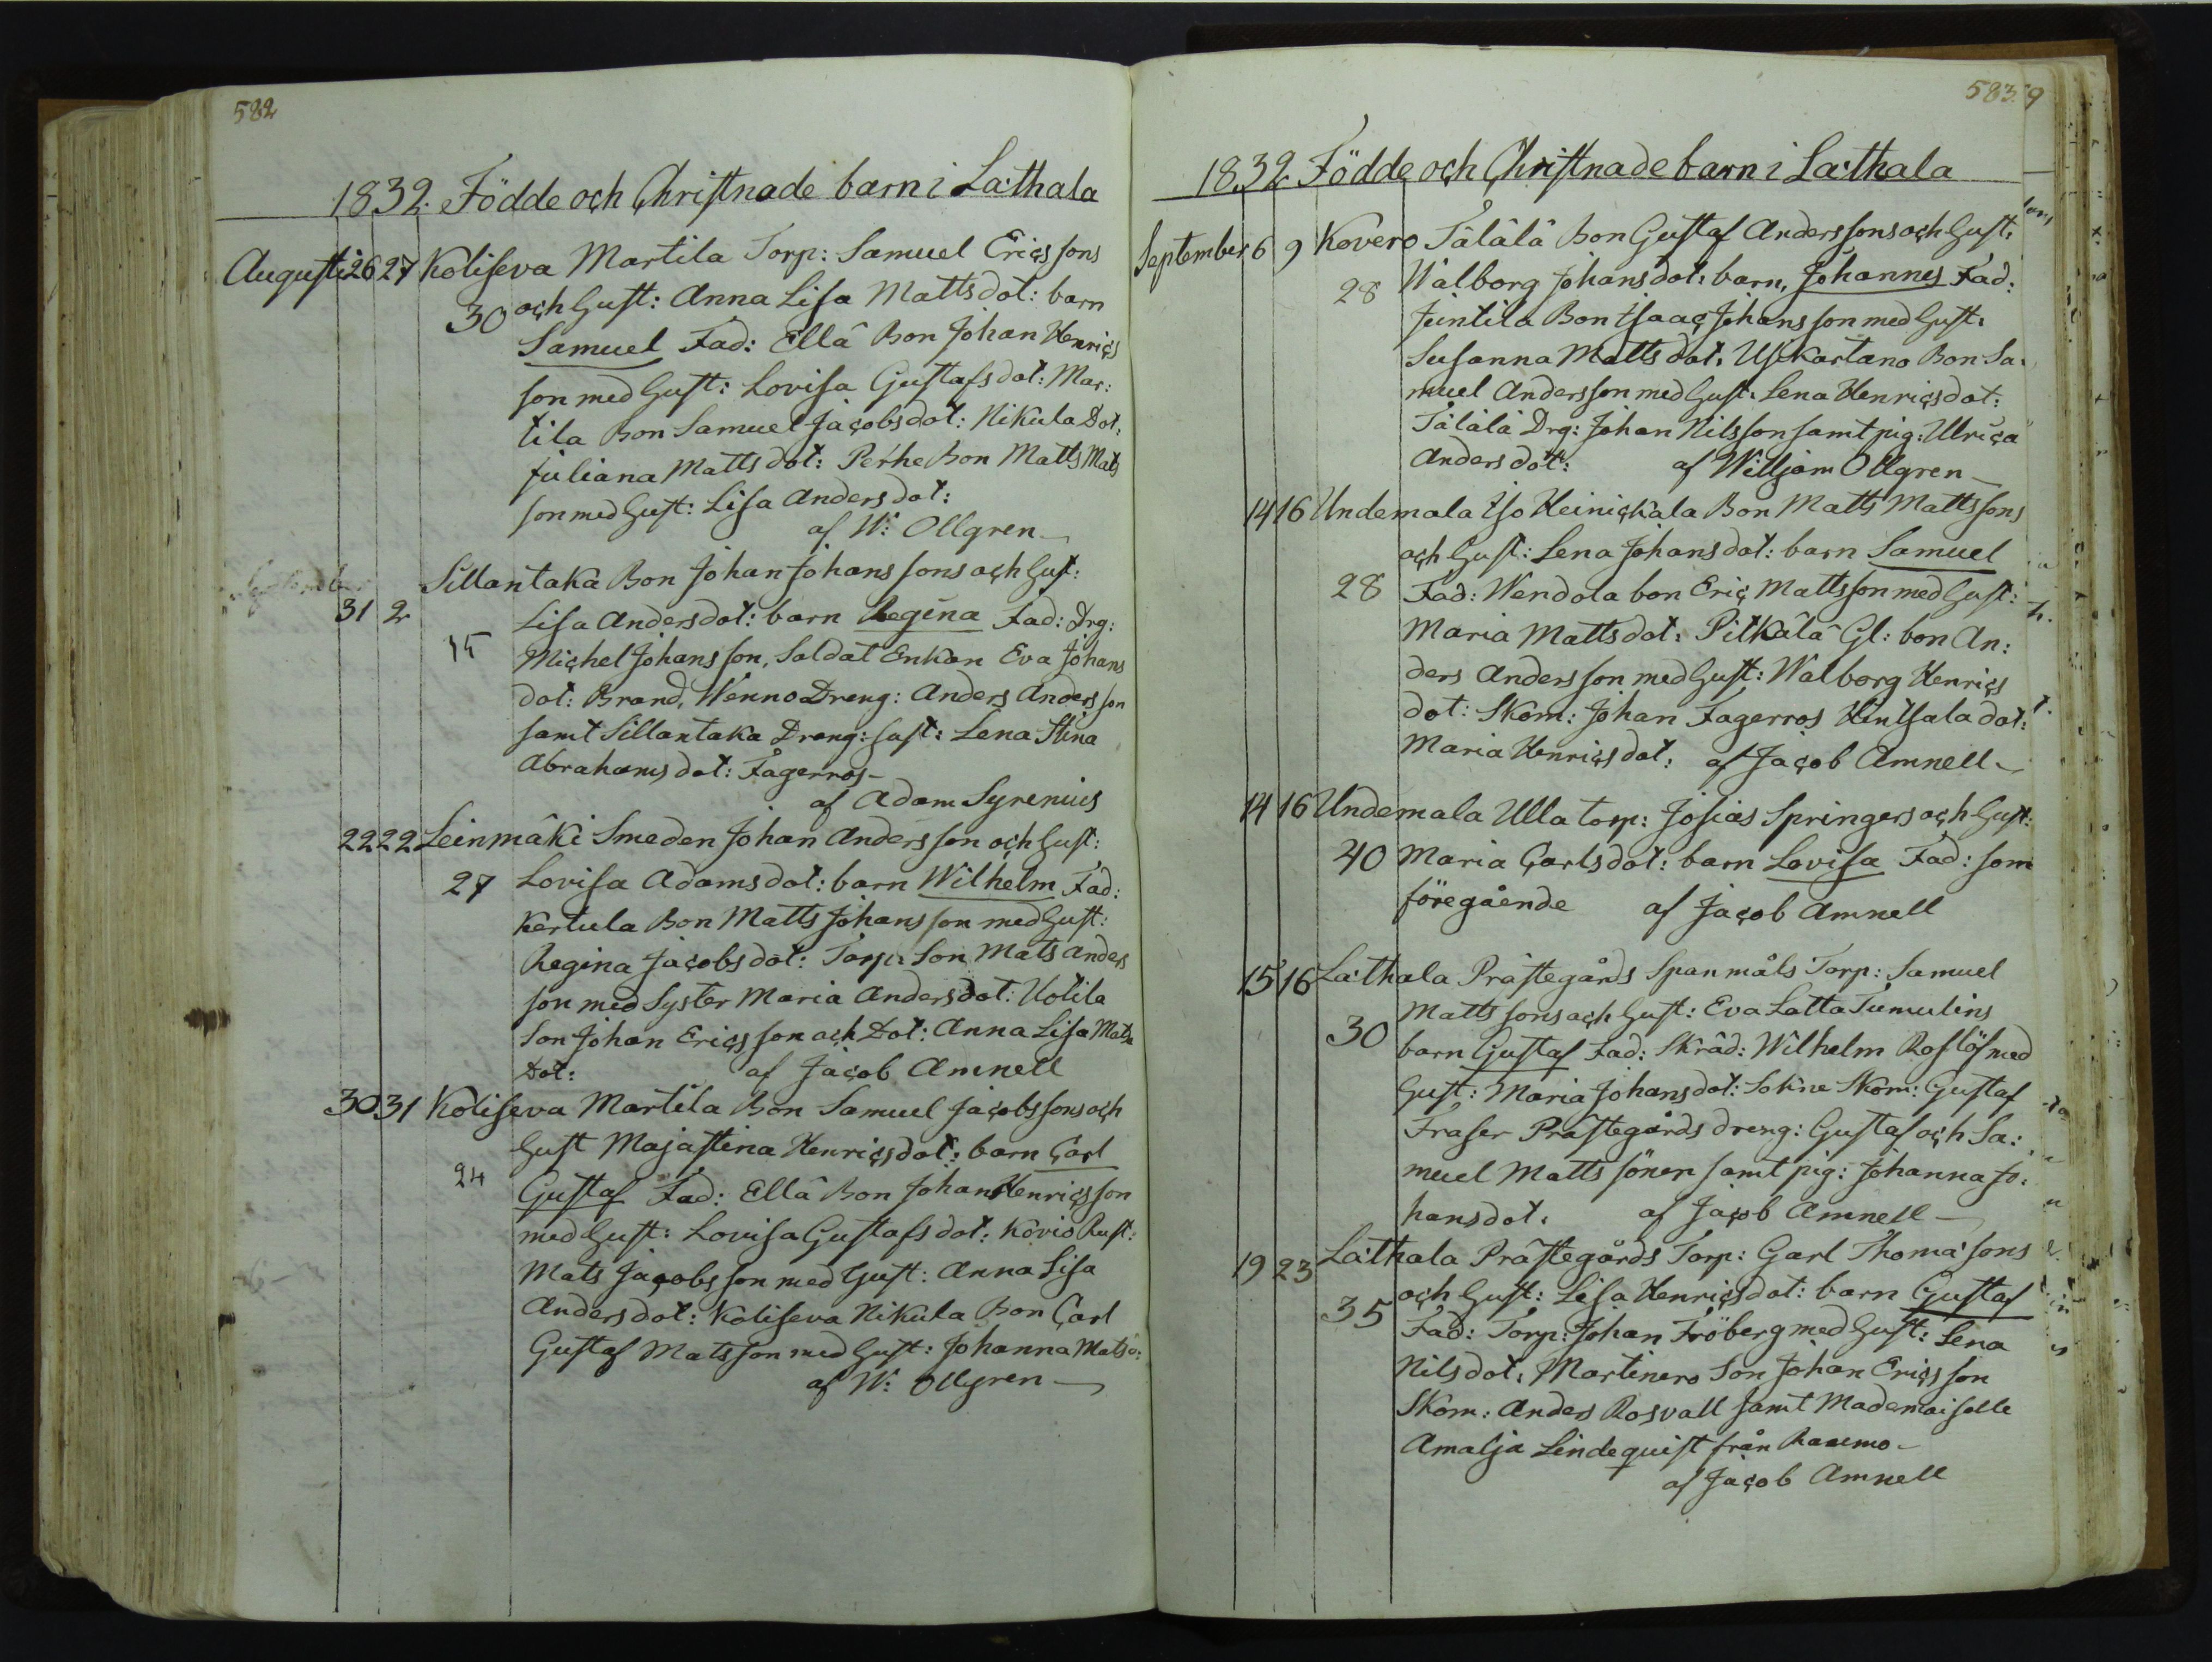 582
1832. Födde och Christnade barn i La:thala
Augusti 26 27 Koliseva Martila Torp: Samuel Ericssons
30 och Hust: Anna Lisa Mattsdot: barn
Samuel Fad: Ellâ Bon Johan Henrics
son med Hust: Lovisa Gustafsdot: Mar:
tila Bon Samuel Jacobsdot: Nikula Dot:
Juliana Mattsdot: Perhe Bon Matts Mats
son med Hust: Lisa Andersdot:
af W: Ollgren
September
Sillantaka Bon Johan Johanssons och Hust:
31 2 Lisa Andersdot: barn Regina Fad: Drg:
Michel Johansson, Soldat Enkan Eva Johans
dot: Brand, Wenno Dreng: Anders Andersson
samt Sillantaka Dreng: Hust: Lena Stina
Abrahamsdot: Fagerros
af Adam Syrenius
22 22 Leinmâki Smeden Johan Andersson och Hust:
27 Lovisa Adamsdot: barn Wilhelm Fad:
Kertula Bon Matts Johansson med Hust:
Regina Jacobsdot: Torp: Son Mats Anders
son med Syster Maria Andersdot: Uotila
Son Johan Ericsson och Dot: Anna Lisa Mats
Dot: af Jacob Amnell
30 31 Koliseva Martila Bon Samuel Jacobssons och
Hust Majastina Henricsdot: barn Carl
24
Gustaf Fad: Ellâ Bon Johan Henricsson
med Hust: Lovisa Gustafsdot: Kovio Rust:
Mats Jacobsson med Hust: Anna Lisa
Andersdot: Koliseva Nikula Bon Carl
Gustaf Matsson med Hust: Johanna Matsd:
af W: Ollgren
583
1832. Födde och Christnade barn i La:thala
September 6 9 Kovero Tâlâlâ Bon Gustaf Anderssons och Hust:
28 Walborg Johansdot: barn, Johannes Fad:
Juntila Bon Isaac Johansson med Hust:
Susanna Mattsdot: Uskartano Bon Sa:
muel Andersson med Hust: Lena Henricsdot:
Tâlâlâ Drg: Johan Nilsson samt pig: Ulrica
Andersdot: af Willjam Ollgren
14 16 Undemala Iso Heinickala Bon Matts Mattssons
och Hust: Lena Johansdot: barn Samuel
28 Fad: Wendola bon Eric Mattsson med Hust:
Maria Mattsdot: Pitkâlâ Gl: bon An:
ders Andersson med Hust: Walborg Henrics
dot: Skom: Johan Fagerros Hintsala dot:
Maria Henricsdot: af Jacob Amnell
14 16 Undemala Ulla torp: Josias Springers och Hust:
40 Maria Carlsdot: barn Lovisa Fad: som
föregående af Jacob Amnell
15 16 La:thala Prâstegårds Spanmåls Torp: Samuel
Mattssons och Hust: Eva Latta Tumulins
30
barn Gustaf Fad: Skrâd: Wilhelm Roslöf med
Hust: Maria Johansdot: Sokne Skom: Gustaf
Fraser Prâstegårds dreng: Gustaf och Sa:
muel Mattssöner samt pig: Johanna Jo:
hansdot: af Jacob Amnell
19 23 La:thala Prâstegårds Torp: Carl Thomasons
och Hust: Lisa Henricsdot: barn Gustaf
35
Fad: Torp: Johan Fröberg med Hust: Lena
Nilsdot: Martinero Son Johan Ericsson
Skom: Anders Rosvall samt Mademoiselle
Amalja Lindequist från Raumo
af Jacob Amnell